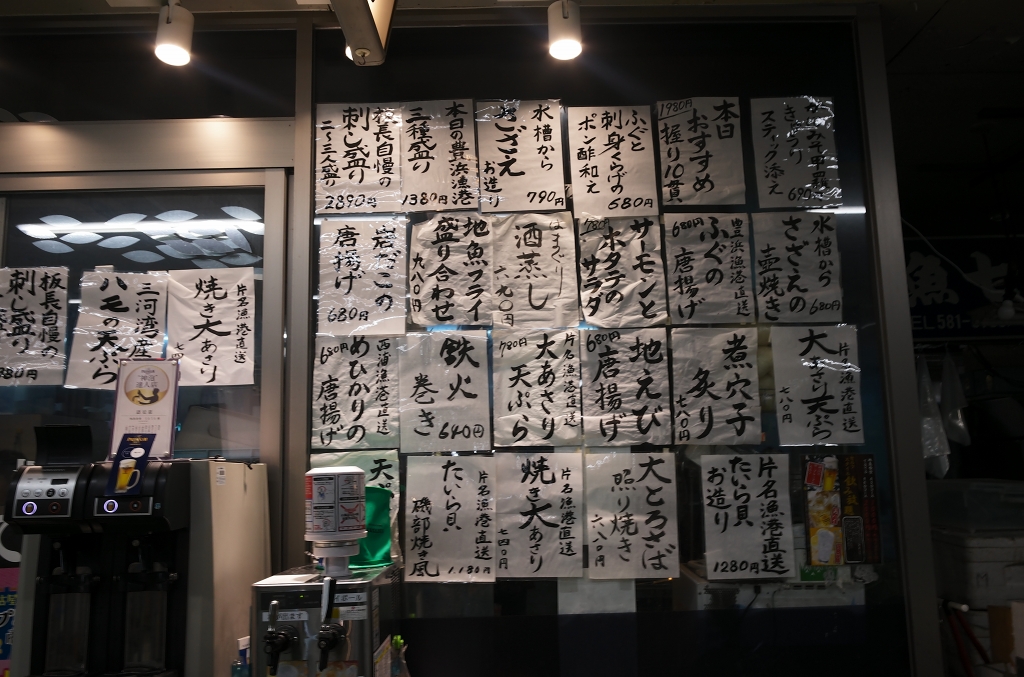 本日
おすすめ
握り10貫
1980円
水槽から
さざえ
お造り
790円
ふぐと
刺身くらげの
ポン酢和え
680円
本日の豊浜漁港
三種盛り
1380円
板長自慢の
刺し盛り
二〜三人盛り
2890円
スティック添え
690円
水槽から
さざえの
壷焼き
680円
豊浜漁港直送
ふぐの
唐揚げ
680円
サーモンと
ホタテの
サラダ
780円
はまぐり
酒蒸し
六九〇円
地魚フライ
盛り合わせ
九八〇円
唐揚げ
680円
片名漁港直送
大あさり天ぷら
七八〇円
煮穴子
炙り
七八〇円
地えび
唐揚げ
680円
片名漁港直送
大あさり
天ぷら
780円
鉄火
巻き
640円
西海漁港直送
めひかりの
唐揚げ
680円
片名漁港直送
たいら貝
お造り
1280円
大とろさば
照り焼き
六八〇円
片名漁港直送
焼き大あさり
七四〇円
片名漁港直送
たいら貝
磯部焼き風
1,180円
天
片名漁港直送
焼き大あさり
三河湾産
ハモの天ぷら
板長自慢の
刺し盛り
達人店
TEL.581-